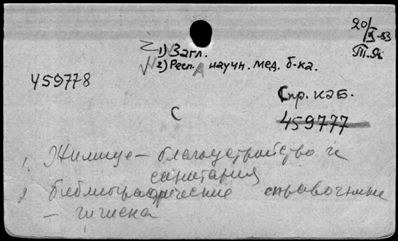 20/X-53
1) Загл.
Т.Я.
2) Респ. научн. мед. б-ка.
459778
Спр. каб.
С
459777
1. Жилище - благоустройство и
санитария
2. Библиографические справочники
- гигиена